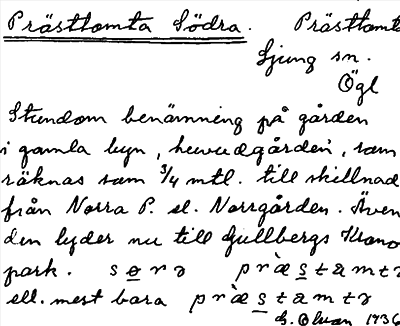 Prästtomta Södra. Prästtomta
Ljung sn.
Ögl
Stundom benämning på gården
i gamla byn, huvudgården, som
räknas som 3/4 mtl. till skillnad
från Norra P. el. Norrgården. Även
den lyder nu till Gullbergs Krono
park. sørə præstamtə
ell. mest bara præstamtə
1936